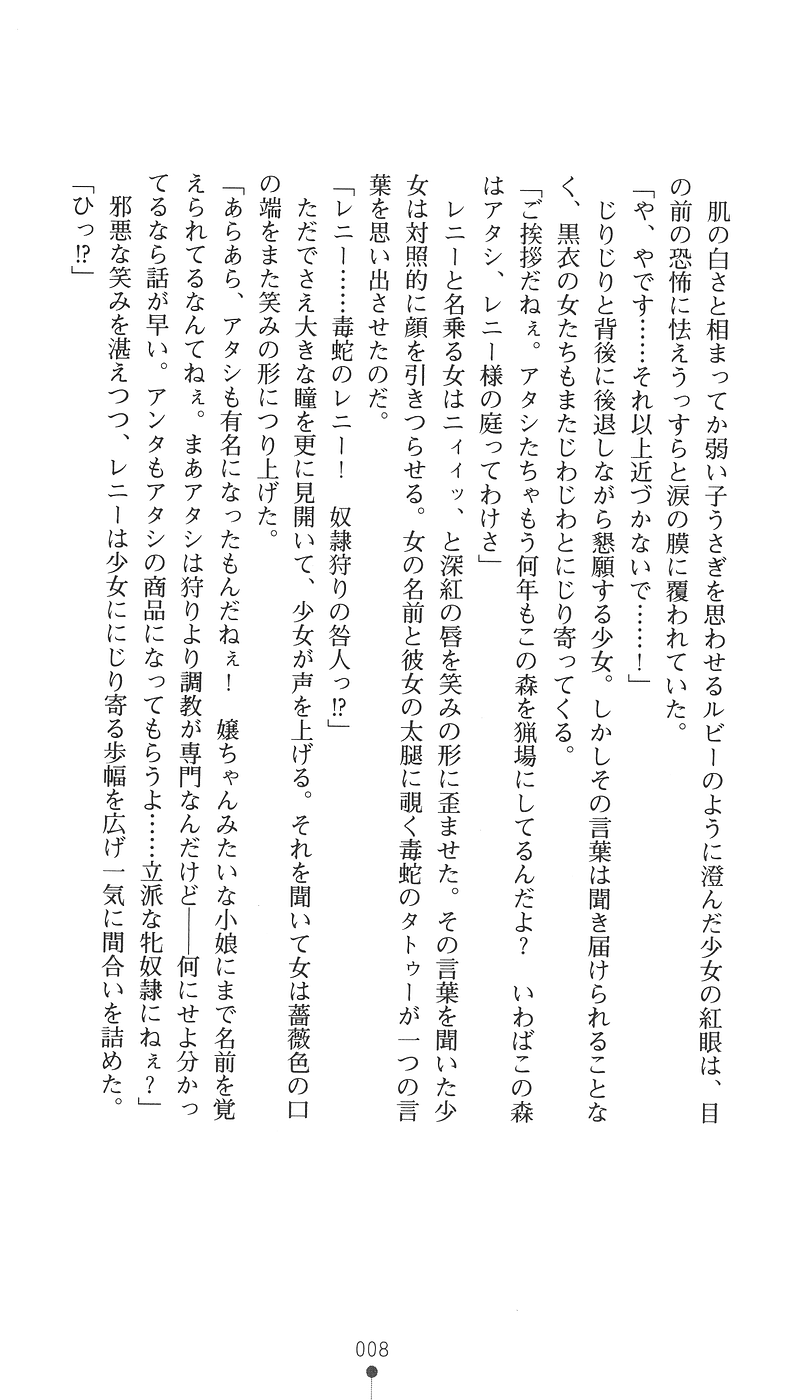 肌の白さと相まってか弱い子うさぎを思わせるルビーのように澄んだ少女の紅眼は、目
の前の恐怖に怯えうっすらと涙の膜に覆われていた。
「や、やです……それ以上近づかないで……！」
じりじりと背後に後退しながら懇願する少女。しかしその言葉は聞き届けられることな
く、黒衣の女たちもまたじわじわとにじり寄ってくる。
「ご挨拶だねぇ。アタシたちゃもう何年もこの森を猟場にしてるんだよ？　いわばこの森
はアタシ、レニー様の庭ってわけさ」
レニーと名乗る女はニィィッ、と深紅の唇を笑みの形に歪ませた。その言葉を聞いた少
女は対照的に顔を引きつらせる。女の名前と彼女の太腿に覗く毒蛇のタトゥーが一つの言
葉を思い出させたのだ。
「レニー……毒蛇のレニー！　奴隷狩りの咎人っ!?」
ただでさえ大きな瞳を更に見開いて、少女が声を上げる。それを聞いて女は薔薇色の口
の端をまた笑みの形につり上げた。
「あらあら、アタシも有名になったもんだねぇ！　嬢ちゃんみたいな小娘にまで名前を覚
えられてるなんてねぇ。まあアタシは狩りより調教が専門なんだけど――何にせよ分かっ
てるなら話が早い。アンタもアタシの商品になってもらうよ……立派な牝奴隷にねぇ？」
邪悪な笑みを湛えつつ、レニーは少女ににじり寄る歩幅を広げ一気に間合いを詰めた。
「ひっ!?」
008